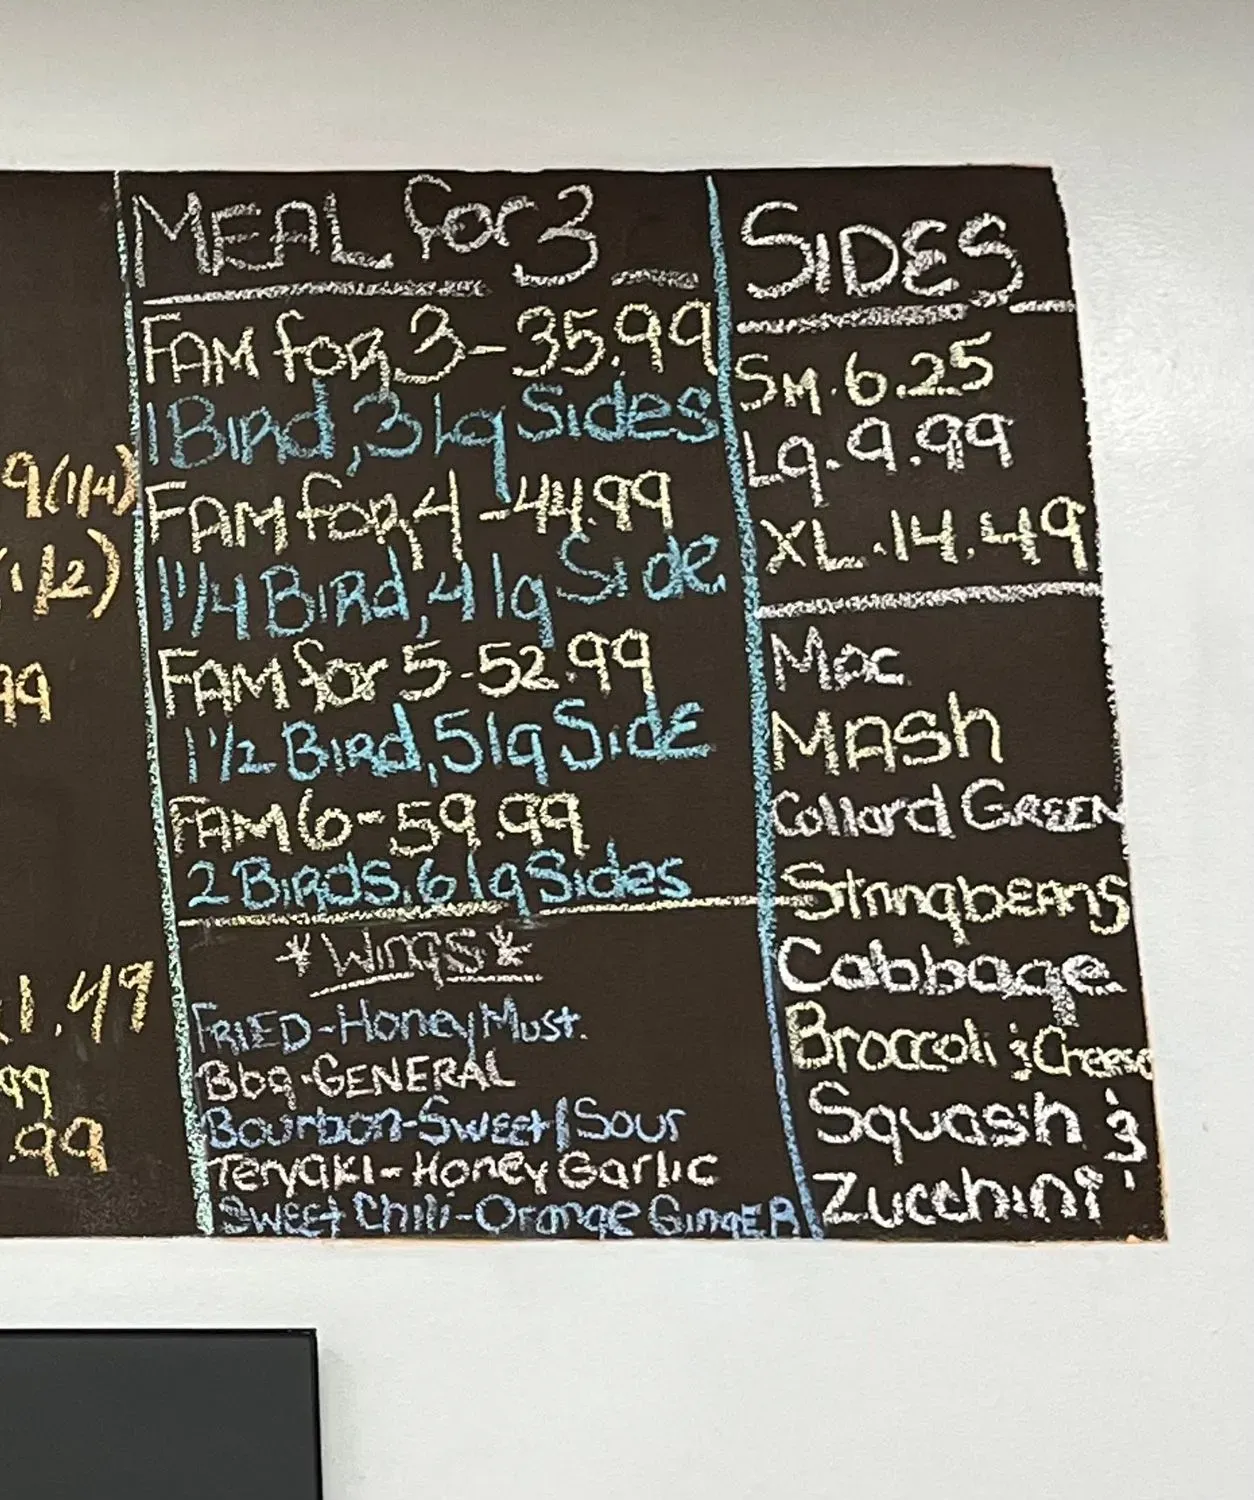 9(1/4)
(1/2)
99
1.49
99
.99
MEAL for 3
FAM for 3 - 35.99
1 Bird, 3 lg Sides
FAM for 4 - 44.99
1 1/4 Bird, 4 lg Side
FAM for 5 - 52.99
1 1/2 Bird, 5 lg Side
FAM 6 - 59.99
2 Birds. 6 lg Sides
*Wings*
FRIED - Honey Must.
Bbq - GENERAL
Bourbon - Sweet/Sour
Teryaki - Honey Garlic
Sweet Chili - Orange Ginger
SIDES
Sm. 6.25
Lg. 9.99
XL. 14.49
Mac
MASh
Collard GREEN
Stringbeans
Cabbage
Broccoli & Cheese
Squash &
Zucchini